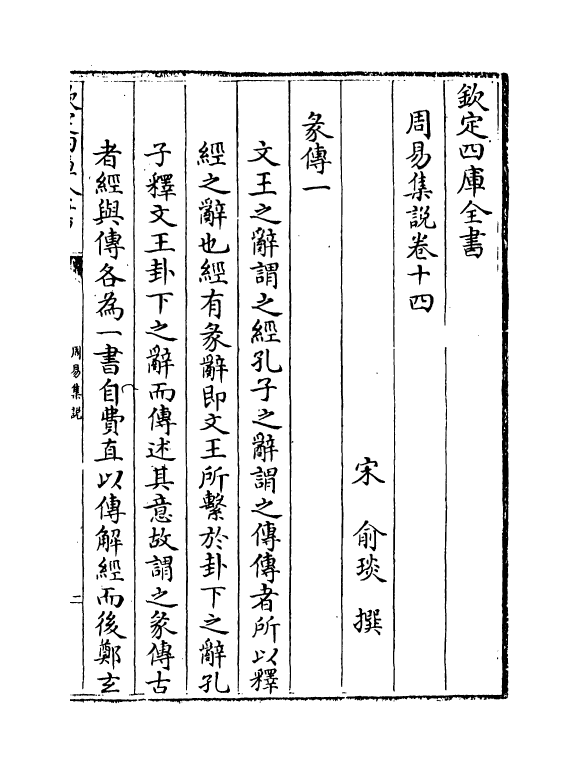 欽定四庫全書
周易集說卷十四
宋 俞琰 撰
彖傳一
文王之辭謂之經孔子之辭謂之傳傳者所以釋
經之辭也經有彖辭即文王所繫於卦下之辭孔
子釋文王卦下之辭而傳述其意故謂之彖傳古
者經與傳各為一書自費直以傳解經而後鄭玄
周易集說
二